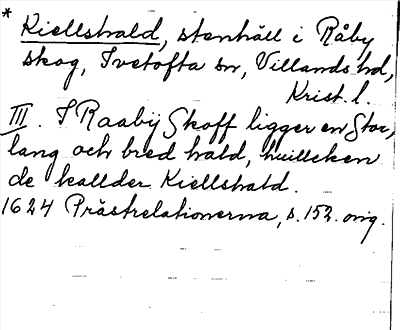 * Kiellshald, stenhäll i Råby
skog, Ivetofta sn, Villands hd,
Krist. l.
III. I Raaby Skoff ligger en Stor,
lang och bred hald, huilleken
de kallder Kiellshald.
1624 Prästrelationerna, s. 152. orig.